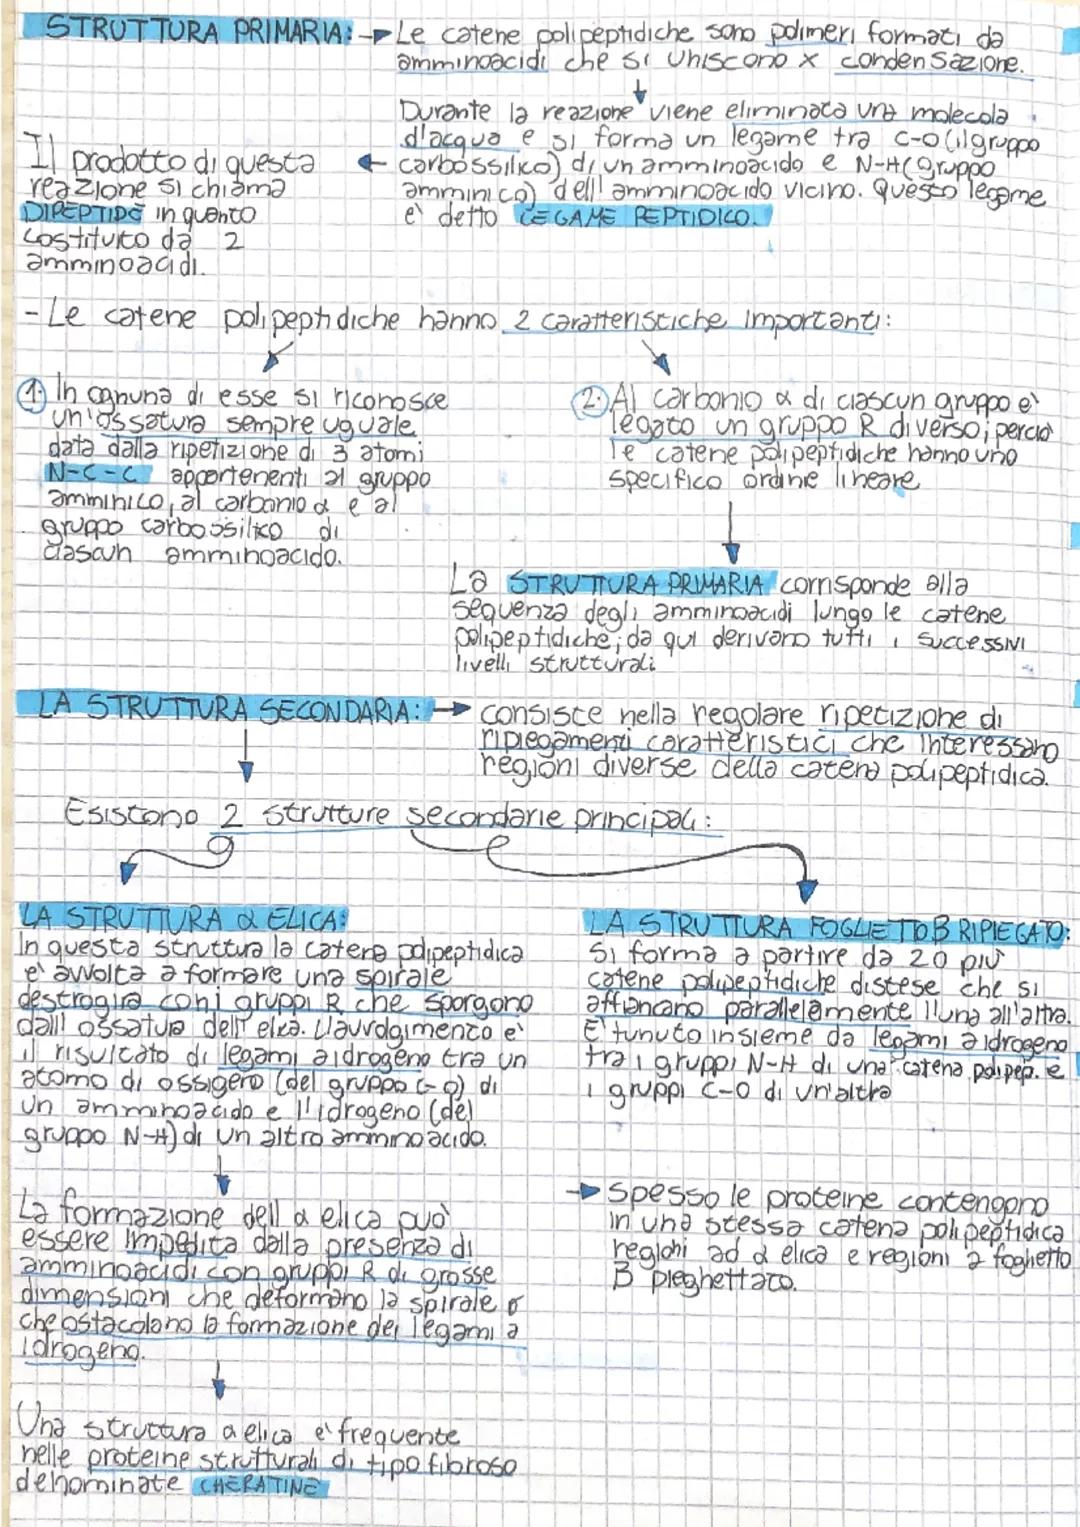 STRUTTURA PRIMARIA: → Le catene polipeptidiche sono polimeri formati da
amminoacidi che si uniscono x condensazione.
Durante la reazione viene eliminata una molecola
d'acqua e si forma un legame tra C-O (il gruppo
carbossilico) di un amminoacido e N-H (gruppo
amminico) dell'amminoacido vicino. Questo legame
e' detto LEGAME PEPTIDICO.
Il prodotto di questa
reazione si chiama
DIPEPTIDE in quanto
costituito da 2
amminoacidi.
- Le catene polipeptidiche hanno 2 caratteristiche importanti:
1. In ognuna di esse si riconosce
un'ossatura sempre uguale
data dalla ripetizione di 3 atomi
N-C-C appartenenti al gruppo
amminico, al carbonio α e al
gruppo carbossilico di
ciascun amminoacido.
2. Al carbonio α di ciascun gruppo e'
legato un gruppo R diverso; perciò
le catene polipeptidiche hanno uno
specifico ordine lineare
La STRUTTURA PRIMARIA corrisponde alla
sequenza degli amminoacidi lungo le catene
polipeptidiche; da qui derivano tutti i successivi
livelli strutturali
LA STRUTTURA SECONDARIA: → consiste nella regolare ripetizione di
ripiegamenti caratteristici che interessano
regioni diverse della catena polipeptidica.
Esistono 2 strutture secondarie principali:
LA STRUTTURA α ELICA:
In questa struttura la catena polipeptidica
e' avvolta a formare una spirale
destrogira con i gruppi R che sporgono
dall'ossatura dell'elica. L'avvolgimento e'
il risultato di legami a idrogeno tra un
atomo di ossigeno (del gruppo C-O) di
un amminoacido e l'idrogeno (del
gruppo N-H) di un altro amminoacido.
La formazione dell α elica può
essere impedita dalla presenza di
amminoacidi con gruppi R di grosse
dimensioni che deformano la spirale o
che ostacolano la formazione dei legami a
idrogeno.
Una struttura α elica e' frequente
nelle proteine strutturali di tipo fibroso
denominate CHERATINE
LA STRUTTURA FOGLIETTO B RIPIEGATO:
Si forma a partire da 2 o più
catene polipeptidiche distese che si
affiancano parallelamente l'una all'altra.
E' tunuto insieme da legami a idrogeno
tra i gruppi N-H di una catena polipep. e
i gruppi C-O di un'altra
→ Spesso le proteine contengono
in una stessa catena polipeptidica
regioni ad α elica e regioni a foglietto
B pieghettato.